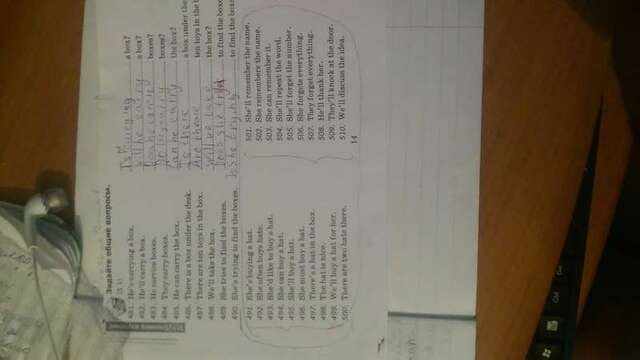 Задайте общие вопросы.
481. He's carrying a box. Is he carrying a box?
482. He'll carry a box. Will he carry a box?
483. He carries boxes. boxes?
484. They carry boxes. Do they carry boxes?
485. He can carry the box. Can he carry the box?
486. There is a box under the desk. Is there a box under the
487. There are ten toys in the box. Are there ten toys in the
488. We'll take the box. Will we take the box?
489. She tries to find the boxes. Does she to find the boxes
490. She's trying to find the boxes. Is she trying to find the boxes
491. She's buying a hat.
492. She often buys hats.
493. She'd like to buy a hat.
494. She can buy a hat.
495. She'll buy a hat.
496. She must buy a hat.
497. There's a hat in the box.
498. The hat is nice.
499. We'll buy a hat for her.
500. There are two hats there.
501. She'll remember the name.
502. She remembers the name.
503. She can remember it.
504. She'll repeat the word.
505. She'll forget the number.
506. She forgets everything.
507. They forget everything.
508. He'll thank her.
509. They'll knock at the door.
510. We'll discuss the idea.
14